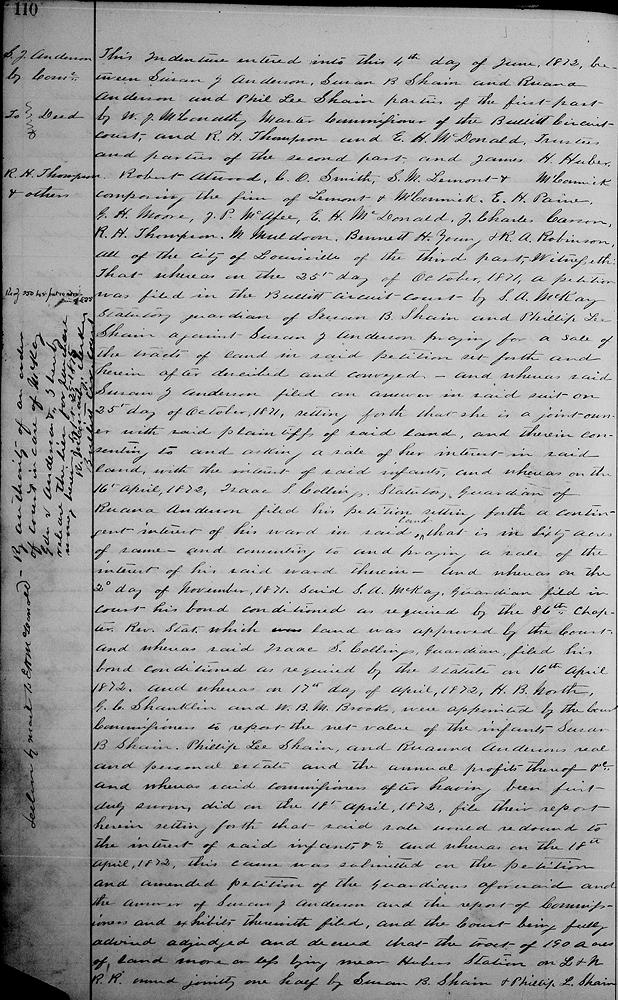 110
S. J. Anderson
by Comr.
To Deed
R. H. Thompson
& others
This Indenture entered into this 4th day of June, 1872, be-
tween Susan J Anderson, Susan B Shain and Ruana
Anderson and Phil Lee Shain parties of the first part
by W. J. McConathy Master Commissioner of the Bullitt Circuit
court, and R. H. Thompson and E. H. McDonald, Trustees
and parties of the second part, and James H. Huber,
Robert Atwood, C. O. Smith, S. W. Lemont & McCormick
composing the firm of Lemont & McCormick. E. H. Paine,
G. H. Moore, J. P. McAfee, E. H. McDonald, J. Charles Carson,
R. H. Thompson. M. Muldoon. Bennett H. Young, & R. A. Robinson,
all of the City of Louisville of the third part, Witnesseth:
That whereas on the 25th day of October, 1871, a petition
was filed in the Bullitt Circuit court by S. A. McKay
Statutory guardian of Susan B Shain and Phillip Lee
Shain against Susan J Anderson praying for a sale of
the tracts of land in said petition set forth and
herein after described and conveyed – and whereas said
Susan J Anderson filed an answer in said suit on
25th day of October, 1871, setting forth that she is a joint own-
er with said plaintiffs of said land, and therein con-
senting to and asking a sale of her interest in said
land, with the interest of said infants, and whereas on the
16th April, 1872, Isaac S. Collings, Statutory Guardian of
Ruana Anderson filed his petition setting forth a contin-
gent interest of his ward in said land, that is in Sixty acres
of same – and consenting to and praying a sale of the
interest of his said ward therein – and whereas on the
2d day of November, 1871. Said S. A. McKay, Guardian filed in
court his bond conditioned as required by the 86th Chap-
ter. Rev. Stat. which was bond was approved by the Court.
and whereas said Isaac S. Collings, Guardian, filed his
bond conditioned as required by the statute on 16th April
1872. and whereas on 17th day of April, 1872, H. B. North,
G. C. Shanklin and W. B. M. Brooks, were appointed by the court
Commissioners to report the net value of the infants Susan
B Shain. Phillip Lee Shain, and Ruanna Andersons real
and personal estate and the annual profits thereof &c.
and whereas said commissioners after having been first
duly sworn, did on the 18th April, 1872, file their report
herein setting forth that said sale would redound to
the interest of said infants &c and whereas on the 18th
April, 1872, this cause was submitted on the petition
and amended petition of the Guardians aforesaid and
the answer of Susan J Anderson and the report of Commiss-
ioners and exhibits therewith filed, and the Court being fully
advised adjudged and decreed that the tract of 190 acres
of land more or less lying near Hubers Station on L & N
R. R. owned jointly one half by Susan B. Shain & Phillip L. Shain
By authority of an order
of court in case of McKay
Gdn. & Anderson, I hereby
release the lien for purchase
money herein